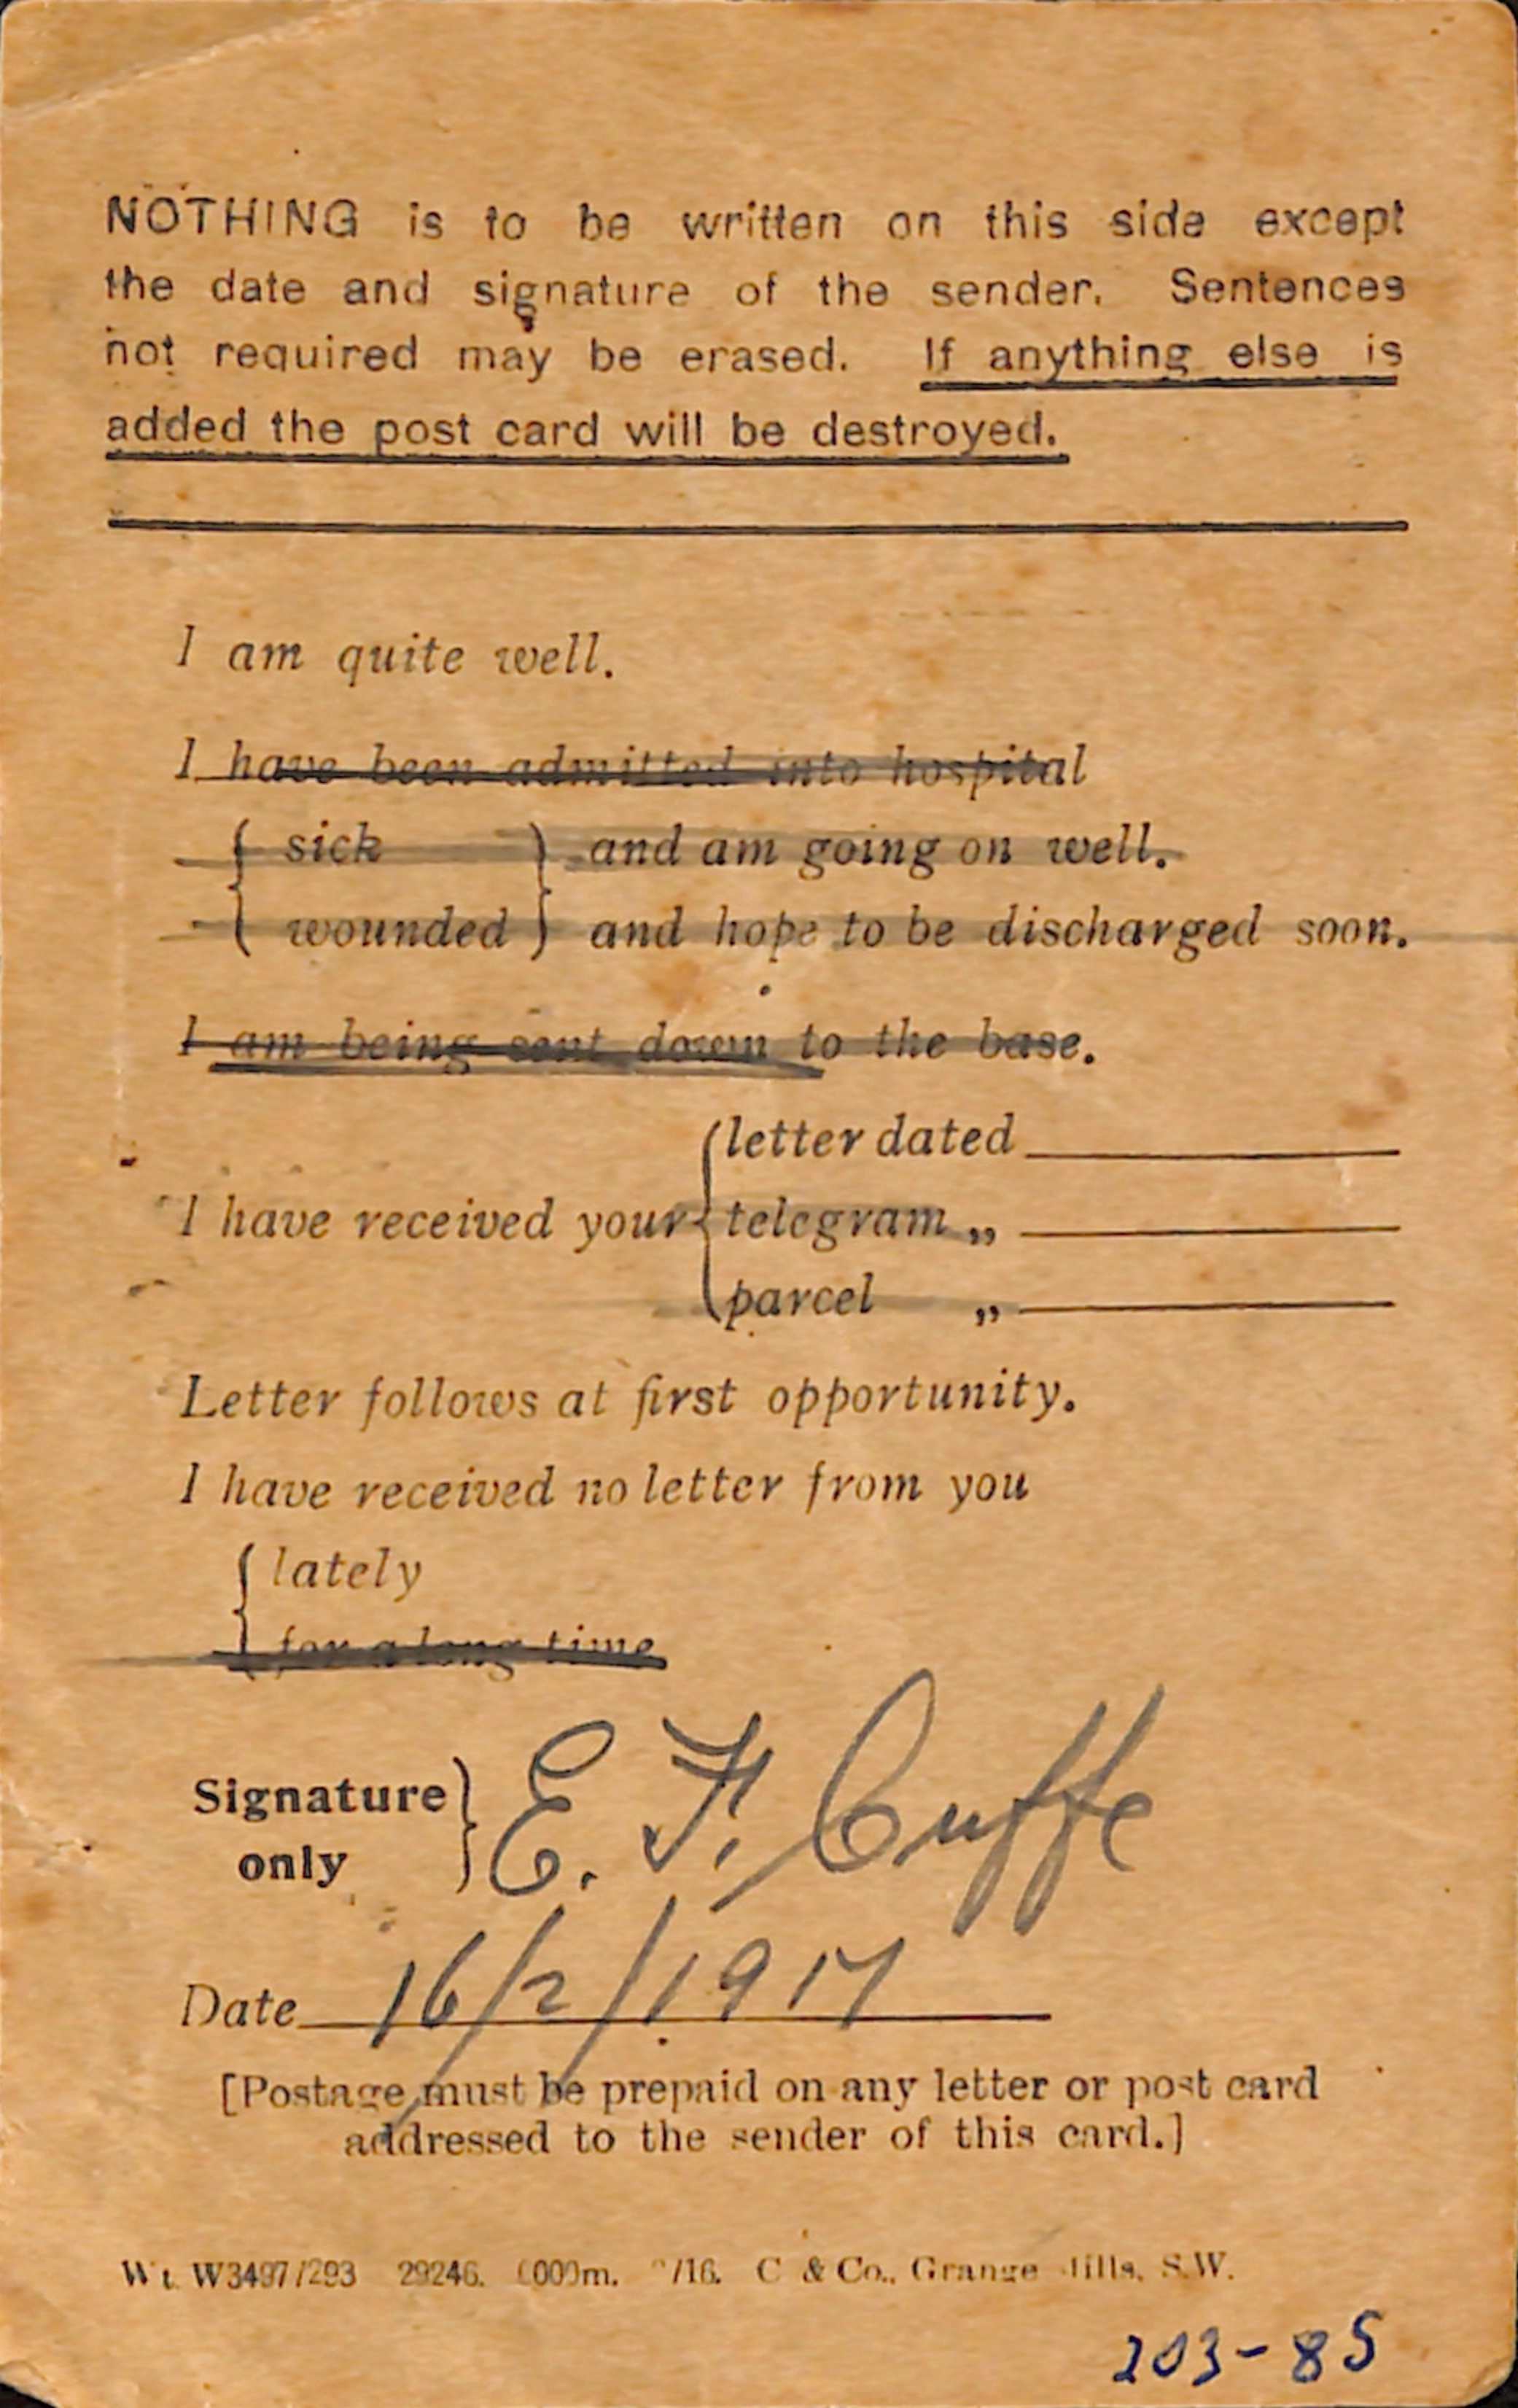 NOTHING is to be written on this side except
the date and signature of the sender. Sentences
not required may be erased. If anything else is
added the post card will be destroyed.
I am quite well.
I have been admitted into hospital
{ sick } and am going on well.
{ wounded } and hope to be discharged soon.
I am being sent down to the base.
letter dated
I have received your { telegram „
parcel „
Letter follows at first opportunity.
I have received no letter from you
{ lately
for a long time
Signature } E. F. Cuffe
only
Date 16/2/1917
[Postage must be prepaid on any letter or post card
addressed to the sender of this card.]
W3497/293 29246. /16. C & Co., Grange Mills, S.W.
203-85